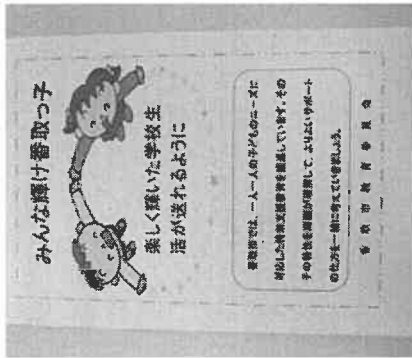 みんな輝け香取っ子
楽しく輝いた学校生
活が送れるように
香取市では、一人一人の子どものニーズに
対応した特別支援教育を推進しています。その
子の特性を周囲が理解して、よりよいサポート
の仕方を一緒に考えていきましょう。
香取市教育委員会